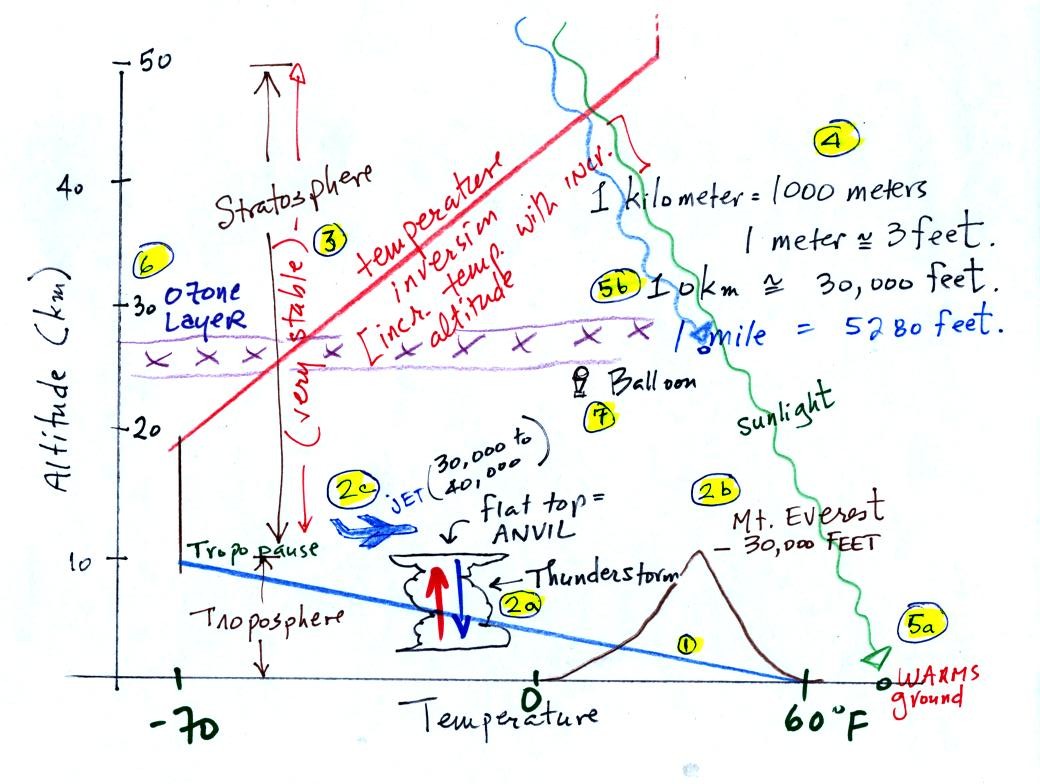 50
40
30
20
10
Altitude (km)
Stratosphere
3
(very stable)
6
Ozone
Layer
temperature
inversion
[incr. temp. with incr.
altitude
4
1 kilometer = 1000 meters
1 meter ≅ 3 feet.
5b
10 km ≅ 30,000 feet.
1 mile = 5280 feet.
Balloon
7
sunlight
2c
jET
(30,000 to
40,000)
flat top =
ANVIL
2b
Mt. Everest
~ 30,000 FEET
Tropopause
Troposphere
Thunderstorm
2a
1
5a
WARMS
ground
-70
0
60°F
Temperature